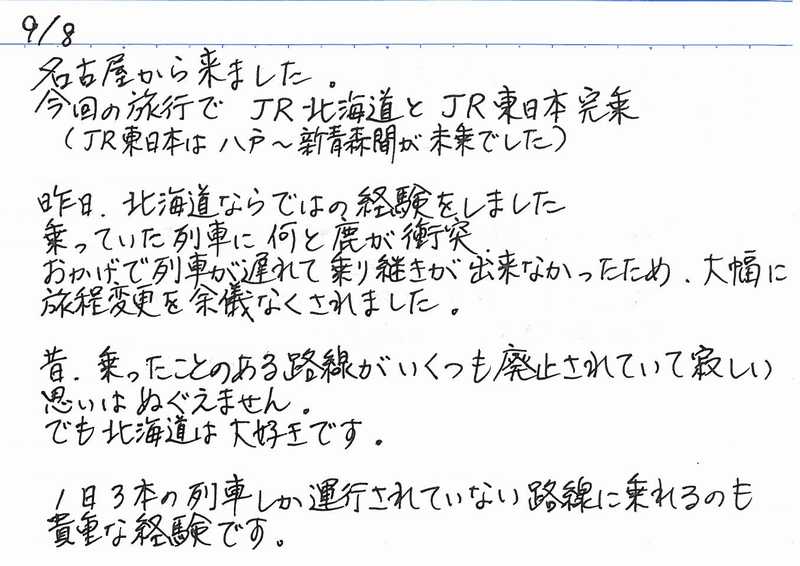 9/8
名古屋から来ました。
今回の旅行で JR北海道と JR東日本完乗
(JR東日本は 八戸～新青森間が 未乗でした)
昨日、北海道ならではの経験をしました
乗っていた列車に何と鹿が衝突、
おかげで列車が遅れて乗り継きが出来なかったため、大幅に
旅程変更を余儀なくされました。
昔、乗ったことのある路線がいくつも廃止されていて寂しい
思いはぬぐえません。
でも北海道は大好きです。
1日3本の列車しか運行されていない路線に乗れるのも
貴重な経験です。